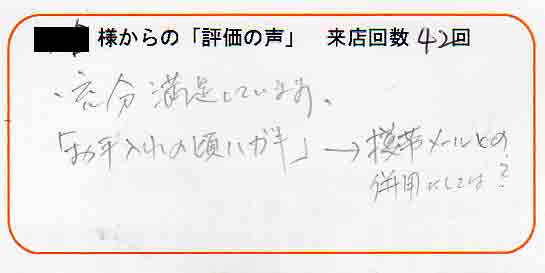 様からの「評価の声」 来店回数 42回
・充分満足しています。
「お手入れの頃ハガキ」→携帯メールとの
併用にしては?